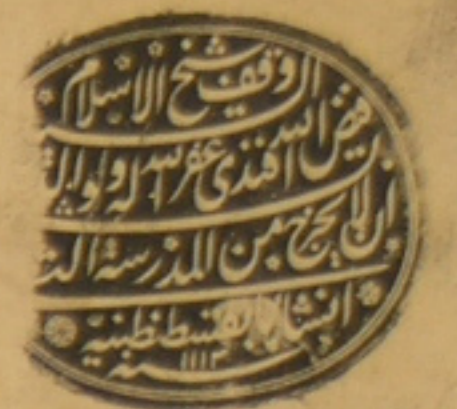 وقف شيخ الاسلام
فيض الله افندى غفر الله له ولوالد
ان لا يخرج من المدرسة الت
انشاها بقسطنطينية
سنة ١١١٣